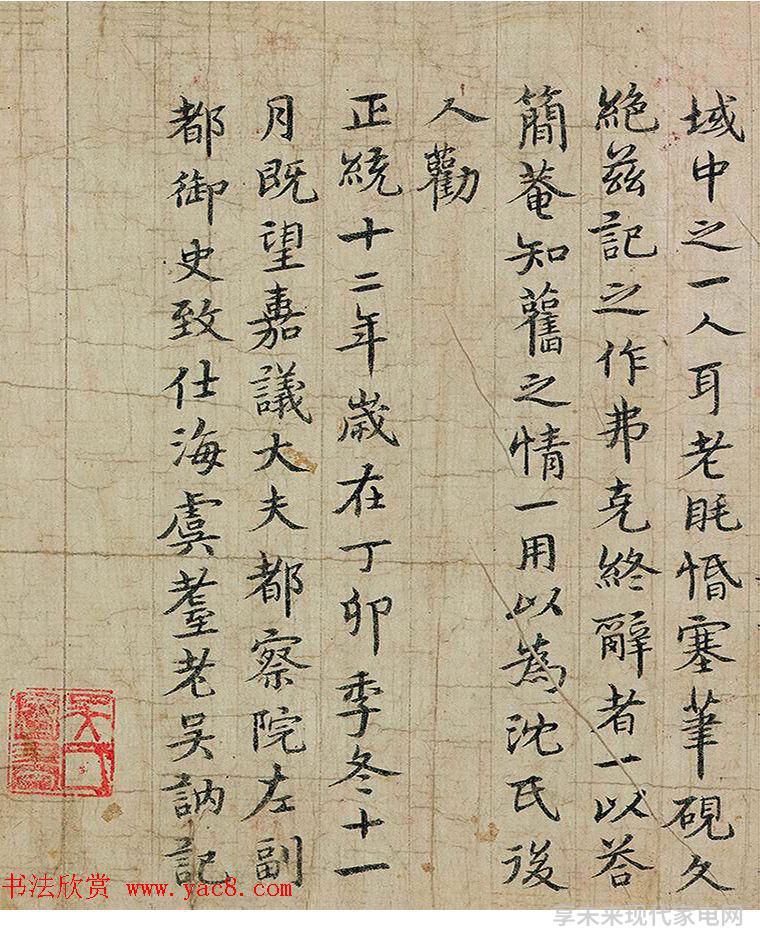 域中之一人耳老眊惛塞筆硯久
絶茲記之作弗克終辭者一以荅
簡菴知舊之情一用以為沈氏後
人勸
正統十二年歲在丁卯季冬十一
月既望嘉議大夫都察院左副
都御史致仕海虞耋老吳訥記
书法欣赏 www.yac8.com
享未来现代家电网